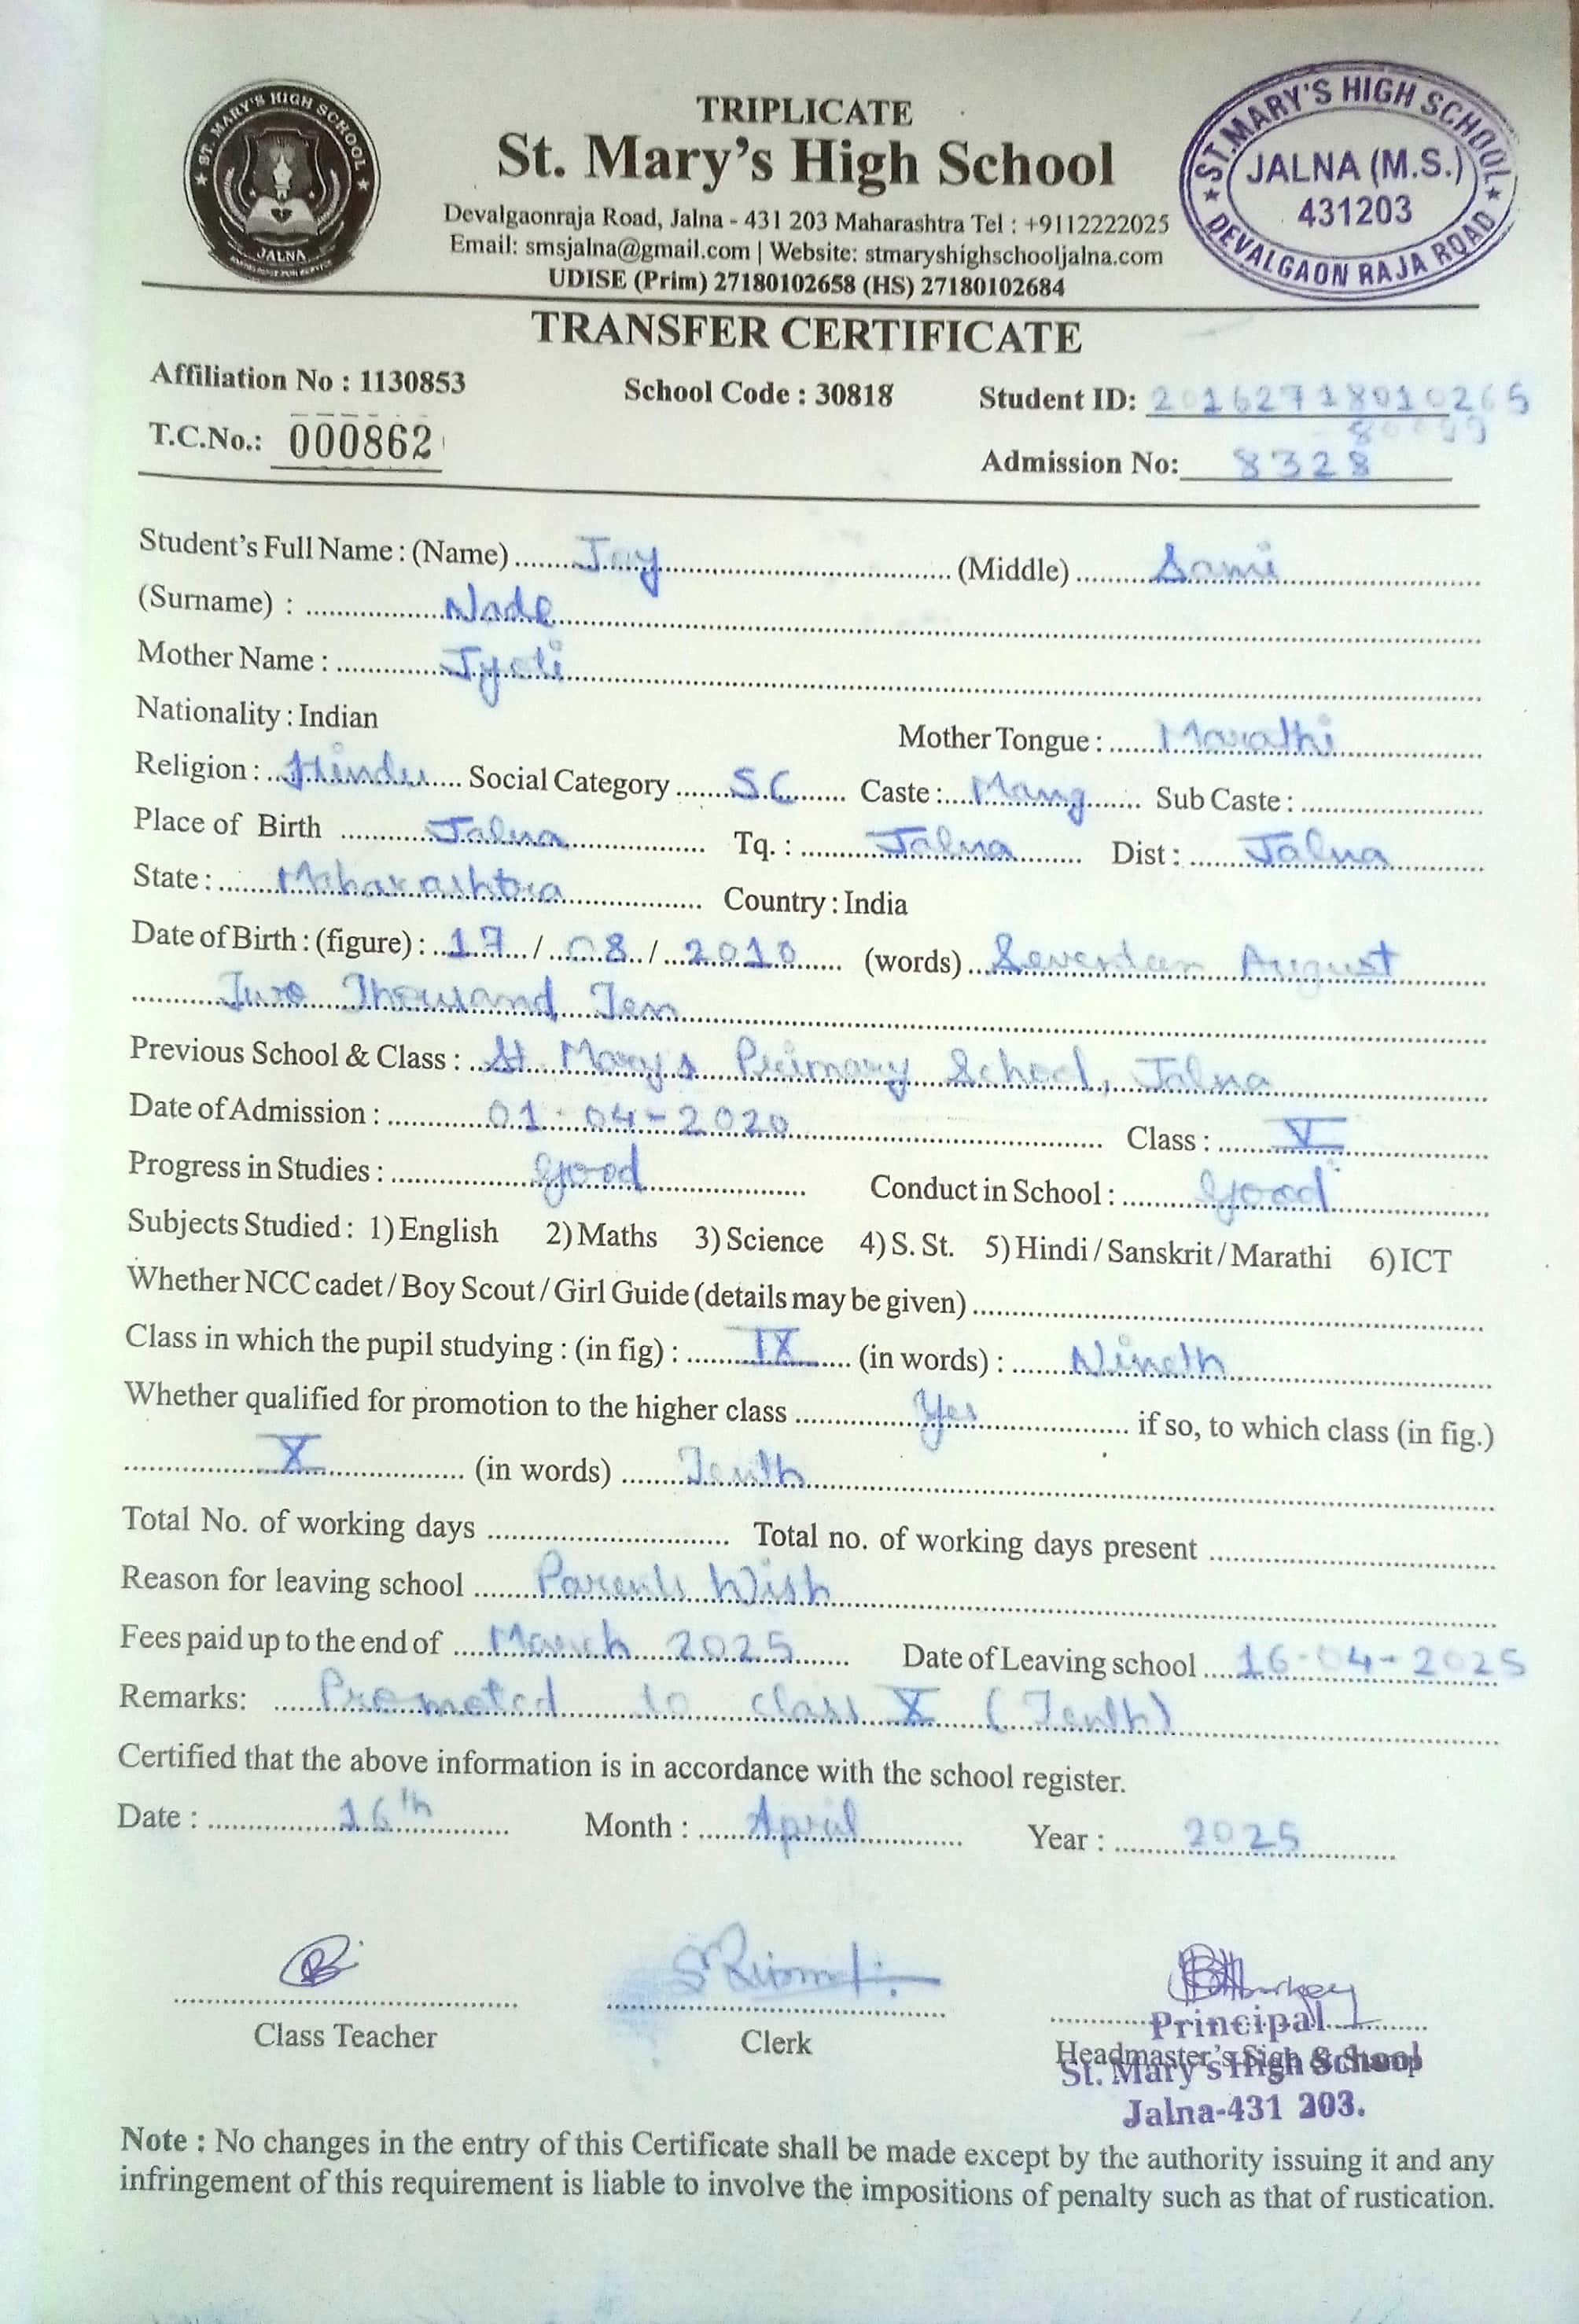 ST. MARY'S HIGH SCHOOL
JALNA
TRIPLICATE
St. Mary's High School
Devalgaonraja Road, Jalna - 431 203 Maharashtra Tel : +9112222025
Email: smsjalna@gmail.com | Website: stmaryshighschooljalna.com
UDISE (Prim) 27180102658 (HS) 27180102684
ST.MARY'S HIGH SCHOOL
JALNA (M.S.)
431203
DEVALGAON RAJA ROAD
TRANSFER CERTIFICATE
Affiliation No : 1130853 School Code : 30818 Student ID: 20162718010265
T.C.No.: 000862 Admission No: 8328
Student's Full Name : (Name) Jay (Middle) Sami
(Surname) : Nade
Mother Name : Jyoti
Nationality : Indian Mother Tongue : Marathi
Religion : Hindu Social Category S.C Caste : Mang Sub Caste :
Place of Birth Jalna Tq. : Jalna Dist : Jalna
State : Maharashtra Country : India
Date of Birth : (figure) : 17 / 08 / 2010 (words) Seventeen August
Two Thousand Ten
Previous School & Class : St. Mary's Primary School, Jalna
Date of Admission : 01-04-2020 Class : V
Progress in Studies : Good Conduct in School : Good
Subjects Studied : 1) English 2) Maths 3) Science 4) S. St. 5) Hindi / Sanskrit / Marathi 6) ICT
Whether NCC cadet / Boy Scout / Girl Guide (details may be given)
Class in which the pupil studying : (in fig) : IX (in words) : Nineth
Whether qualified for promotion to the higher class Yes if so, to which class (in fig.)
X (in words) Tenth
Total No. of working days Total no. of working days present
Reason for leaving school Parents Wish
Fees paid up to the end of March 2025 Date of Leaving school 16-04-2025
Remarks: Promoted to class X (Tenth)
Certified that the above information is in accordance with the school register.
Date : 16th Month : April Year : 2025
Class Teacher Clerk Headmaster's Sign & Stamp
Principal
St. Mary's High School
Jalna-431 203.
Note : No changes in the entry of this Certificate shall be made except by the authority issuing it and any
infringement of this requirement is liable to involve the impositions of penalty such as that of rustication.